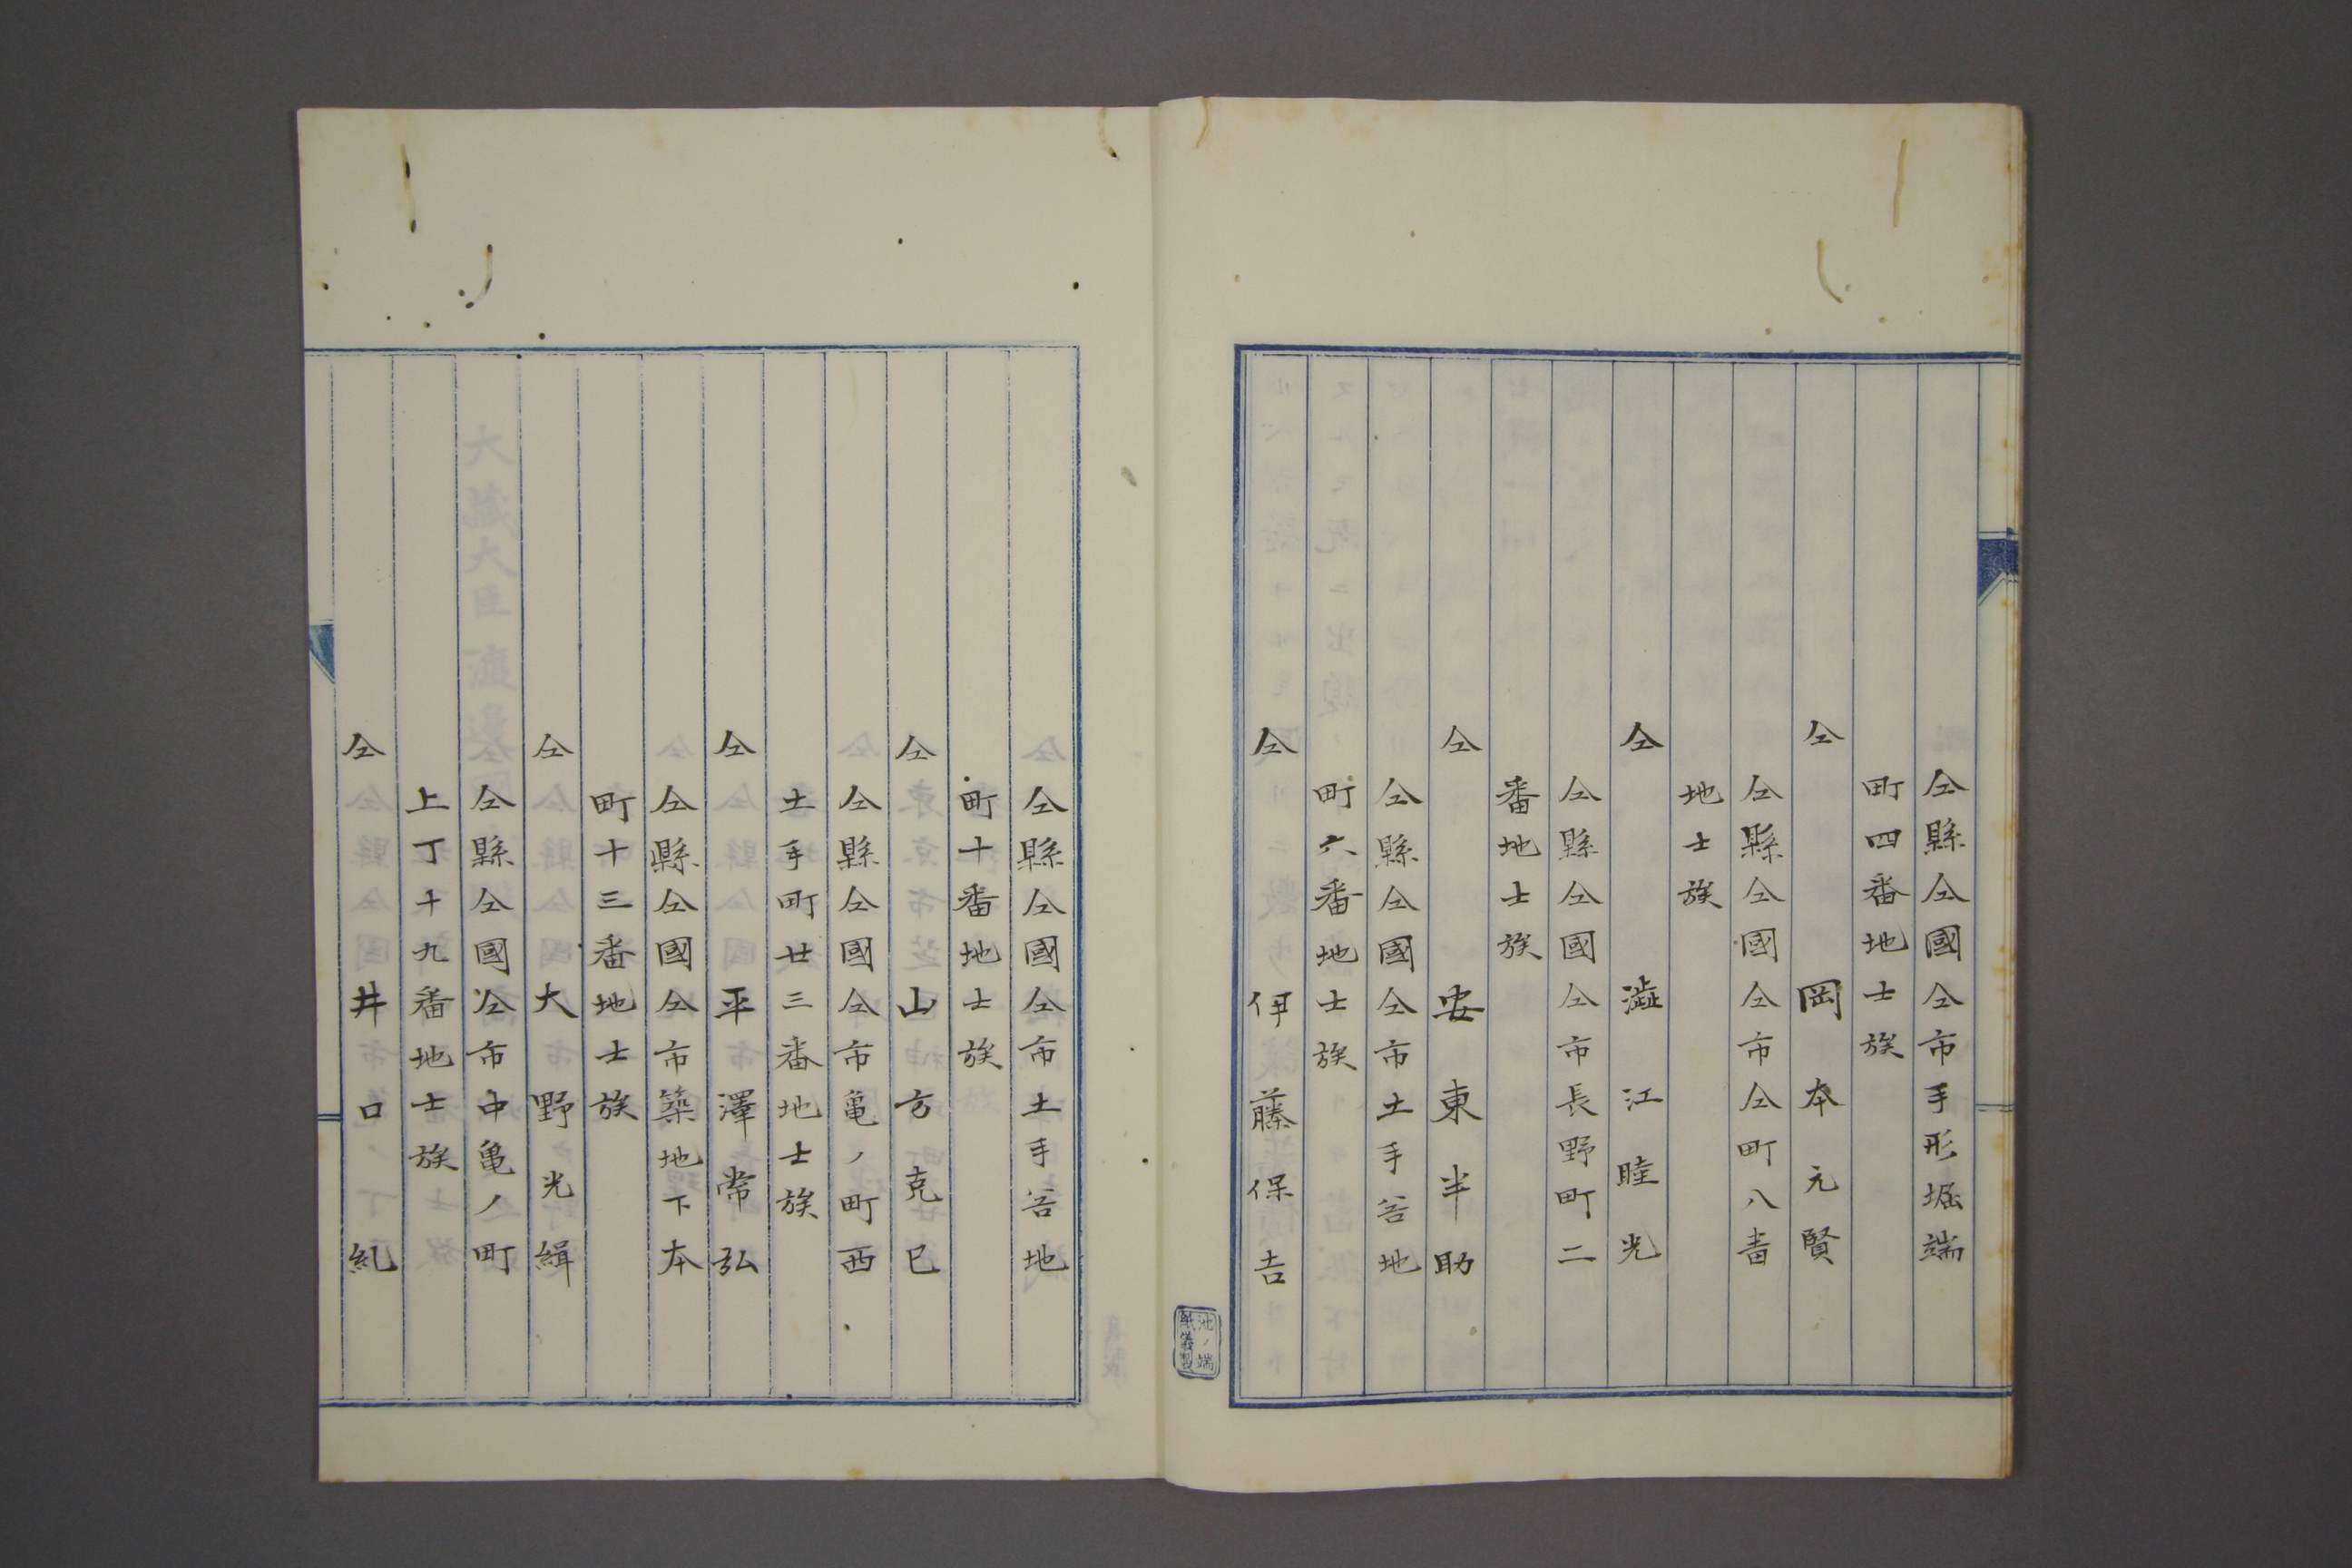 仝縣仝國仝市手形堀端
町四番地士族
仝 岡本元賢
仝縣仝國仝市仝町八番
地士族
仝 澁江睦光
仝縣仝國仝市長野町二
番地士族
仝 安東半助
仝縣仝國仝市土手谷地
町六番地士族
仝 伊藤保吉
池ノ端
仝縣仝國仝市土手谷地
町十番地士族
仝 山方克巳
仝縣仝國仝市亀ノ町西
土手町廿三番地士族
仝 平澤常弘
仝縣仝國仝市築地下本
町十三番地士族
仝 大野光緝
仝縣仝國仝市中亀ノ町
上丁十九番地士族
仝 井口糺